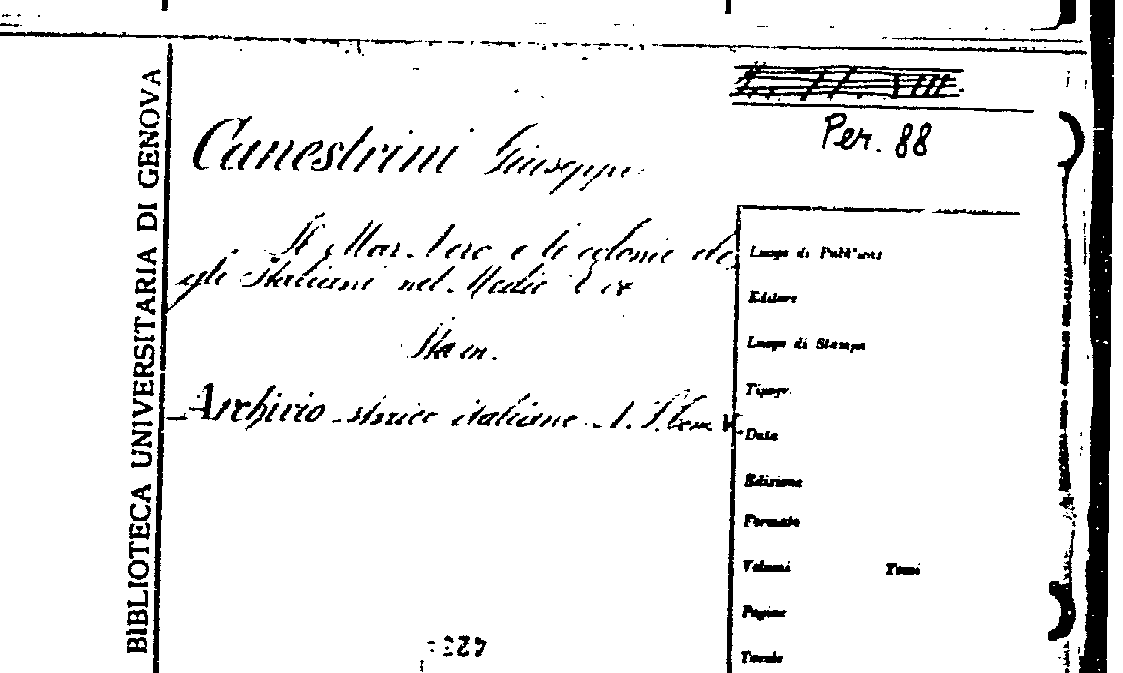 BIBLIOTECA UNIVERSITARIA DI GENOVA
Per. 88
Canestrini Giuseppe
Il Mar Nero e le colonie de
gli Italiani nel Medio Evo
Stam.
Archivio storico italiano N. S. tom V
Luogo di Pubbl.
Editore
Luogo di Stampa
Tipogr.
Data
Edizione
Formato
Volumi Tomi
Pagine
Tavole